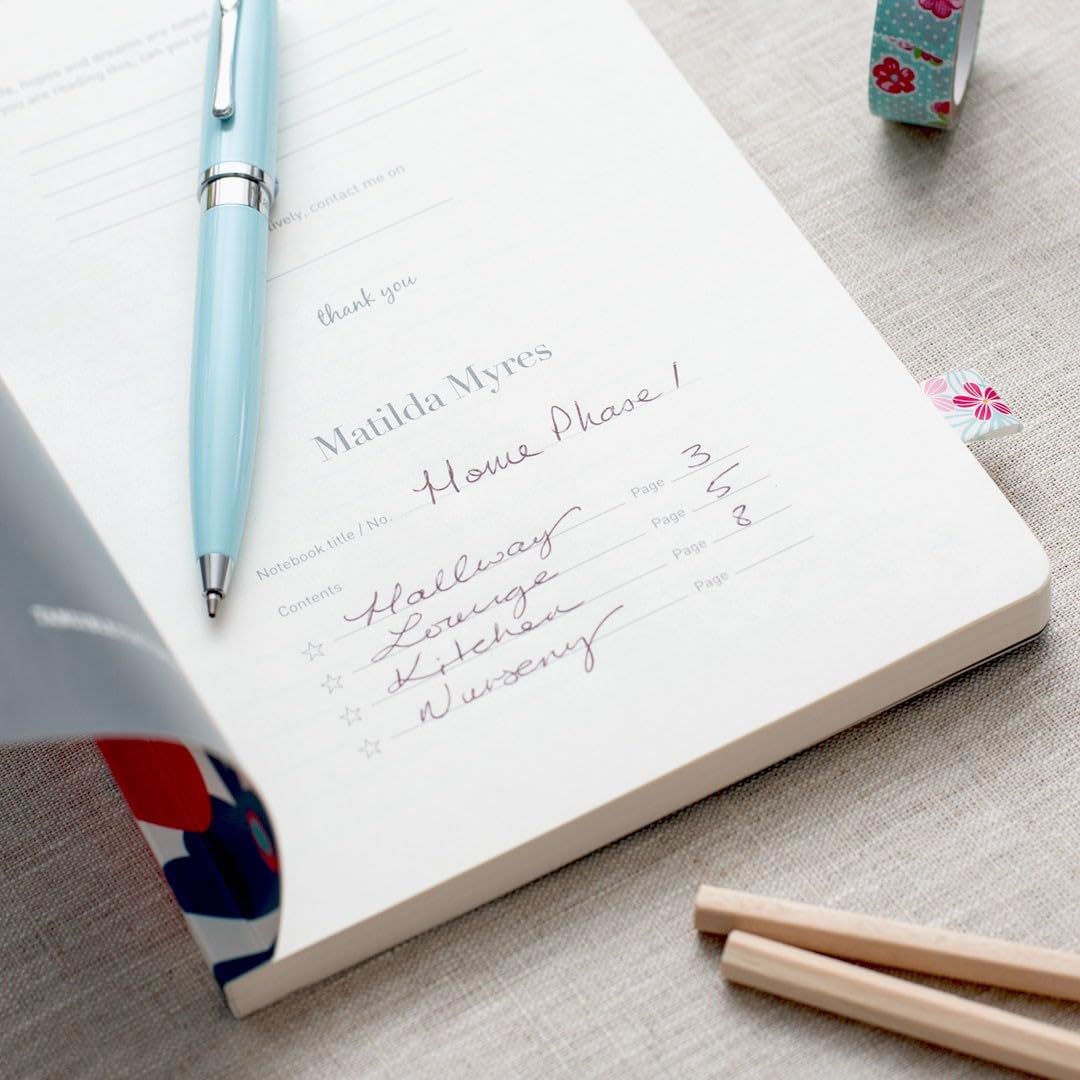 hopes and dreams are noted
you are reading this, can you
contact me on
thank you
Matilda Myres
Notebook title / No. Home Phase 1
Contents
Hallway Page 3
Lounge Page 5
Kitchen Page 8
Nursery Page